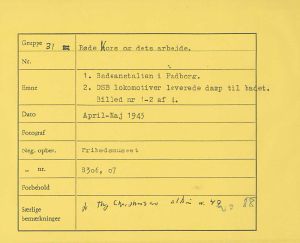 Gruppe 31 Røde Kors og dets arbejde.
Nr.
Emne 1. Badeanstalten i Padborg.
2. DSB lokomotiver leverede damp til badet.
Billed nr 1-2 af i.
Dato April-Maj 1945
Fotograf
Neg. opbev. Frihedsmuseet
" nr. 8306, 07
Forbehold
Særlige
bemærkninger